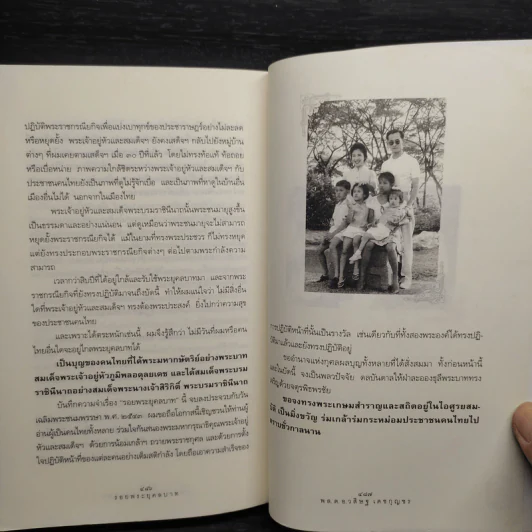 ปฏิบัติพระราชกรณียกิจเพื่อแบ่งเบาทุกข์ของประชาราษฎร์อย่างไม่ละลด
หรือหยุดยั้ง พระเจ้าอยู่หัวและสมเด็จฯ ยังคงเสด็จฯ กลับไปยังหมู่บ้าน
ต่างๆ ที่ผมเคยตามเสด็จฯ เมื่อ ๓๐ ปีที่แล้ว โดยไม่ทรงท้อแท้ ท้อถอย
หรือเบื่อหน่าย ภาพความใกล้ชิดระหว่างพระเจ้าอยู่หัวและสมเด็จฯ กับ
ประชาชนคนไทยยังเป็นภาพที่ดูไม่รู้จักเบื่อ และเป็นภาพที่หาดูในบ้านอื่น
เมืองอื่นไม่ได้ นอกจากในเมืองไทย
พระเจ้าอยู่หัวและสมเด็จพระบรมราชินีนาถนั้นพระชนมายุสูงขึ้น
เป็นธรรมดาและอย่างแน่นอน แต่ดูเหมือนว่าพระชนมายุจะไม่สามารถ
หยุดยั้งพระราชกรณียกิจได้ แม้ในยามที่ทรงพระประชวร ก็ไม่ทรงหยุด
แต่ยังทรงประกอบพระราชกรณียกิจต่างๆ ต่อไปตามพระกำลังความ
สามารถ
เวลากว่าสิบปีที่ได้อยู่ใกล้และรับใช้พระยุคลบาทมา และจากพระ
ราชกรณียกิจที่ยังทรงปฏิบัติมาจนถึงบัดนี้ ทำให้ผมแน่ใจว่า ไม่มีสิ่งอื่น
ใดที่พระเจ้าอยู่หัวและสมเด็จฯ ทรงต้องพระประสงค์ ยิ่งไปกว่าความสุข
ของประชาชนคนไทย
และเพราะได้ตระหนักเช่นนี้ ผมจึงรู้สึกว่า ไม่มีวันที่ผมหรือคน
ไทยอื่นใดจะอยู่ไกลพระยุคลบาทได้
เป็นบุญของคนไทยที่ได้พระมหากษัตริย์อย่างพระบาท
สมเด็จพระเจ้าอยู่หัวภูมิพลอดุลยเดช และได้สมเด็จพระบรม
ราชินีนาถอย่างสมเด็จพระนางเจ้าสิริกิติ์ พระบรมราชินีนาถ
บันทึกความจำเรื่อง "รอยพระยุคลบาท" นี้ จบลงประจวบกับวัน
เฉลิมพระชนมพรรษา ผมขอถือโอกาสนี้เชิญชวนให้ท่านผู้
อ่านผู้เป็นคนไทยทั้งหลาย ร่วมใจกันสนองพระมหากรุณาธิคุณพระเจ้าอยู่
หัวและสมเด็จฯ ด้วยการน้อมเกล้าฯ ถวายพระราชกุศล และด้วยการตั้ง
ใจปฏิบัติหน้าที่ของแต่ละคนอย่างเต็มสติกำลัง โดยถือเอาความสำเร็จของ
๔๘๖
รอยพระยุคลบาท
การปฏิบัติหน้าที่นั้นเป็นรางวัล เช่นเดียวกับที่ทั้งสองพระองค์ได้ทรงปฏิ-
บัติมาแล้วและยังทรงปฏิบัติอยู่
ขออำนาจแห่งกุศลผลบุญทั้งหลายที่ได้สั่งสมมา ทั้งก่อนหน้านี้
และในบัดนี้ จงเป็นพลวปัจจัย ดลบันดาลให้ฝ่าละอองธุลีพระบาททรง
เจริญด้วยจตุรพิธพรชัย
ขอจงทรงพระเกษมสำราญและสถิตอยู่ในไอศูรยสม-
บัติ เป็นมิ่งขวัญ ร่มเกล้าร่มกระหม่อมประชาชนคนไทยไป
ตราบชั่วกาลนาน
๔๘๗
พล.ต.อ.วสิษฐ เดชกุญชร